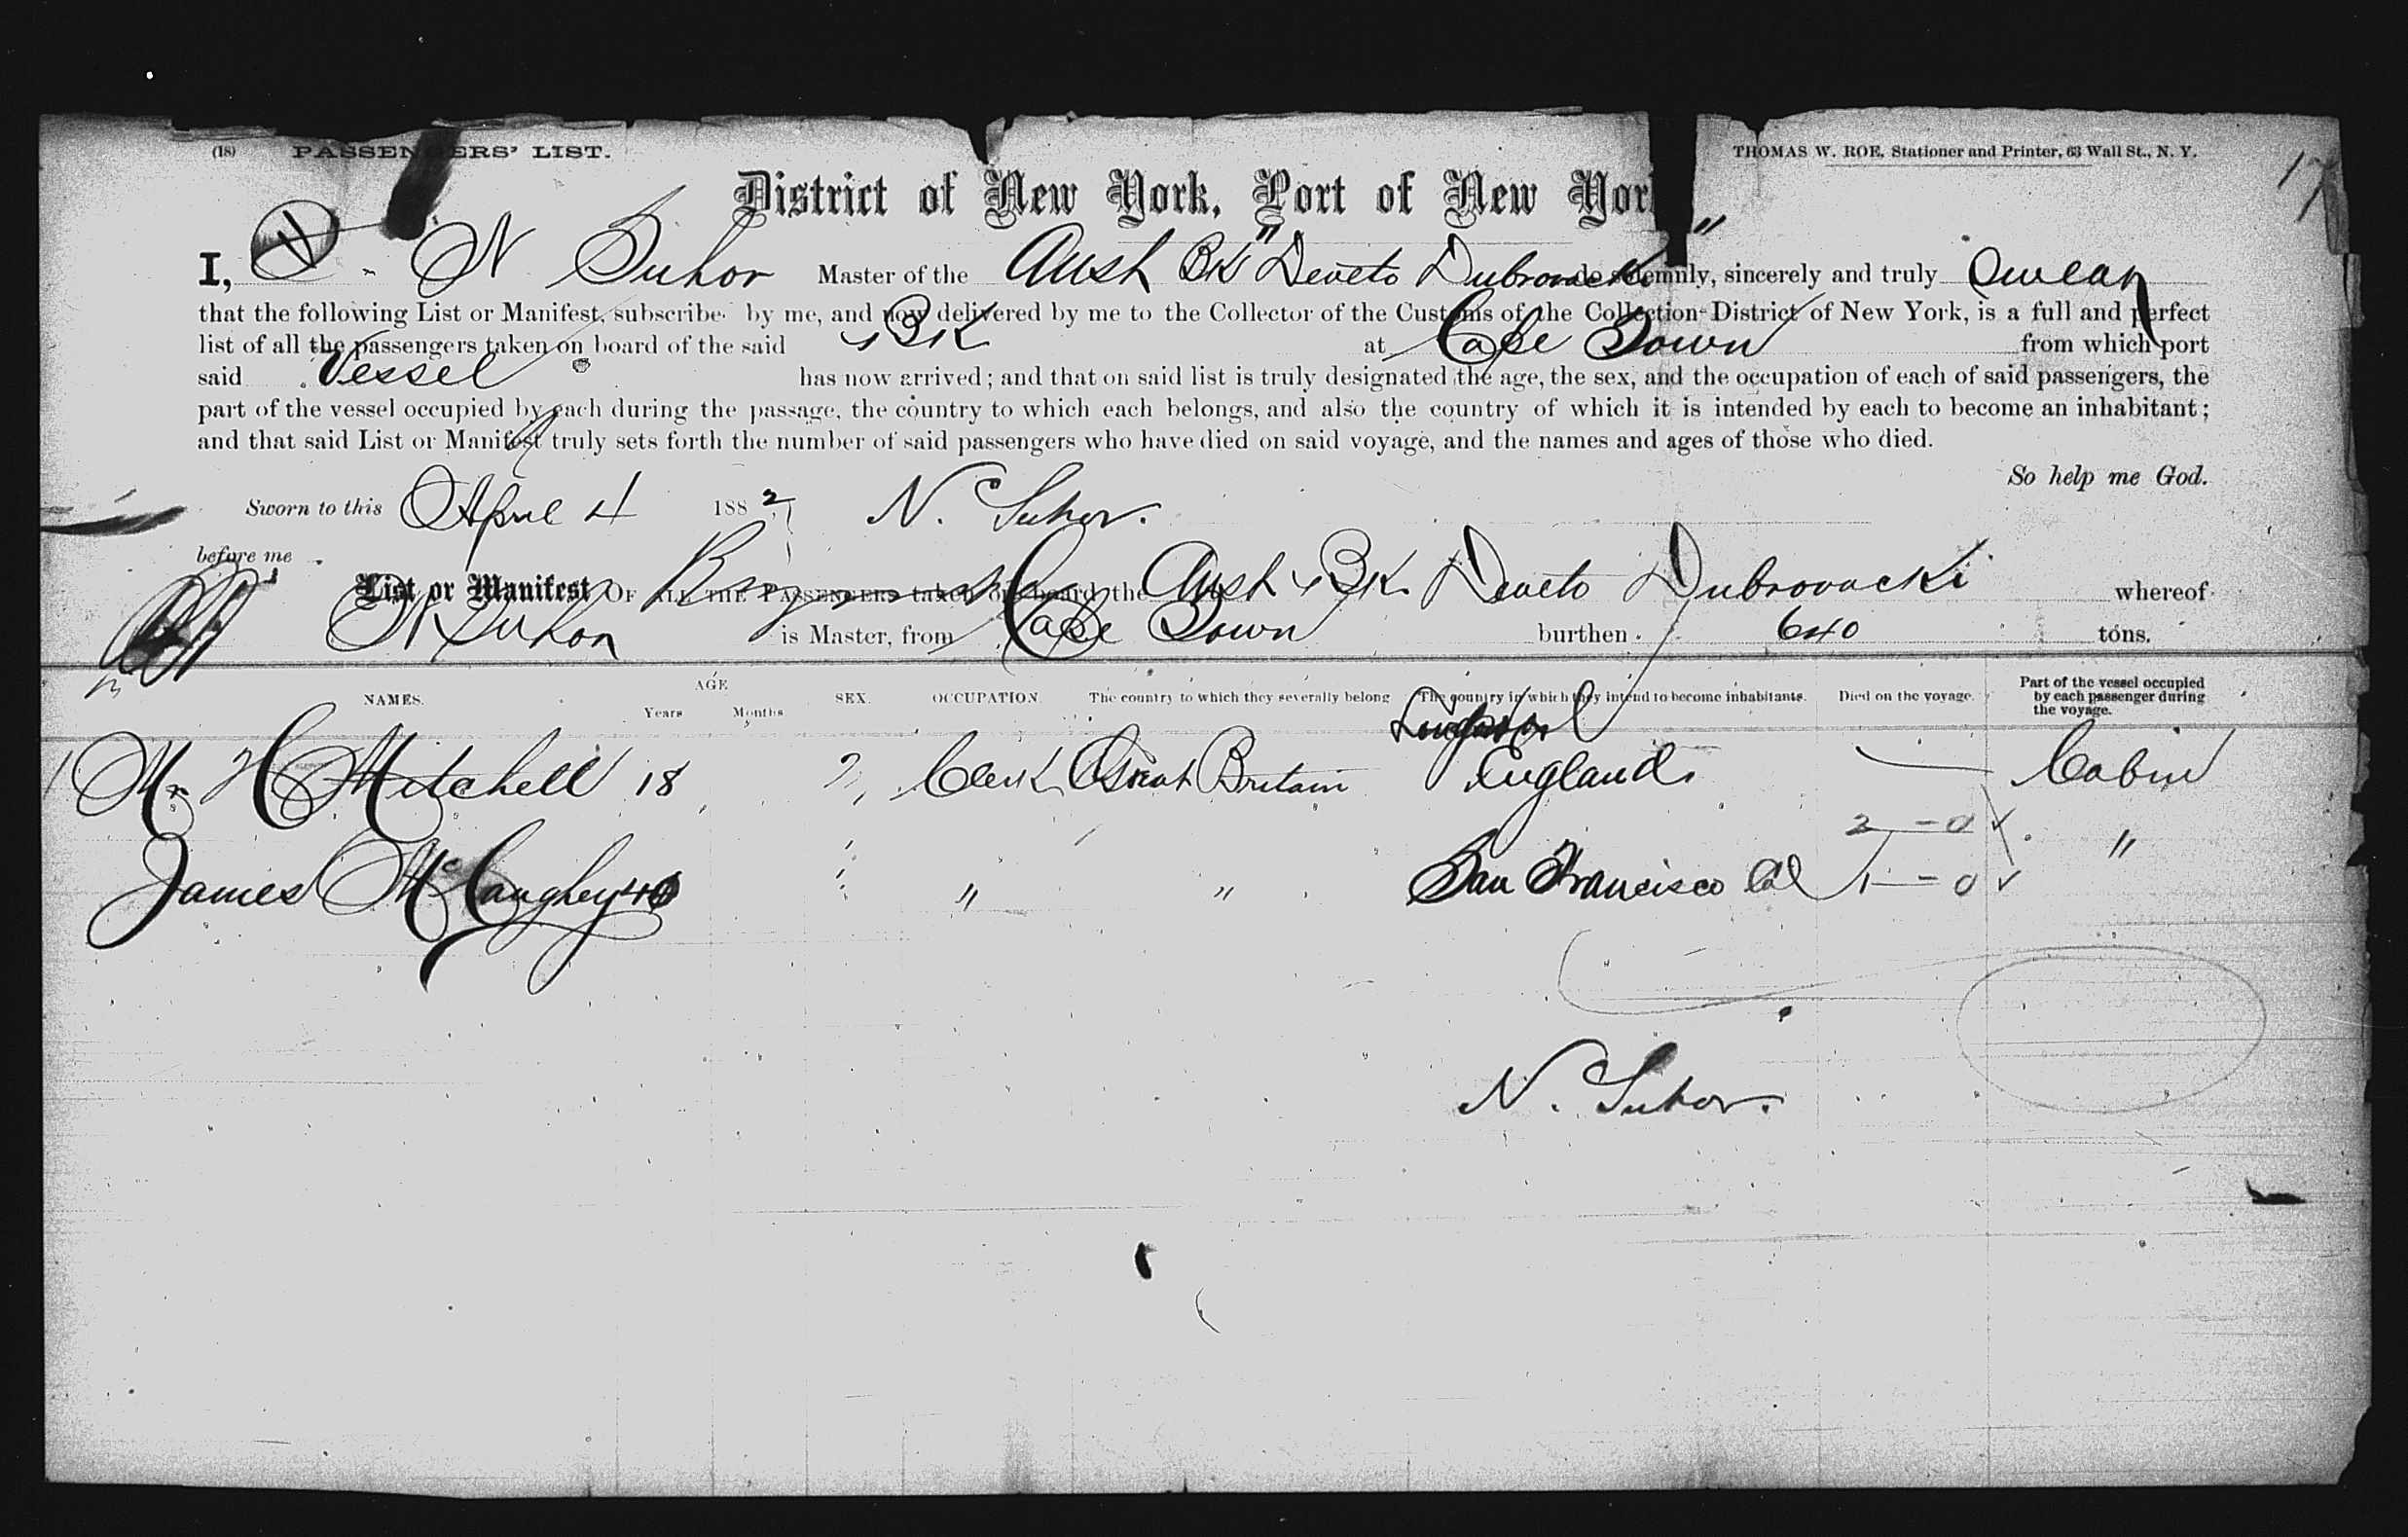 (18) PASSENGERS' LIST. THOMAS W. ROE, Stationer and Printer, 63 Wall St., N. Y.
17
District of New York, Port of New Yor
I, N Suhor Master of the Aust Bk "Deveto Dubrovacki" do solemnly, sincerely and truly swear
that the following List or Manifest, subscribe by me, and now delivered by me to the Collector of the Customs of the Collection District of New York, is a full and perfect
list of all the passengers taken on board of the said Bk at Cape Town from which port
said Vessel has now arrived; and that on said list is truly designated the age, the sex, and the occupation of each of said passengers, the
part of the vessel occupied by each during the passage, the country to which each belongs, and also the country of which it is intended by each to become an inhabitant;
and that said List or Manifest truly sets forth the number of said passengers who have died on said voyage, and the names and ages of those who died.
So help me God.
Sworn to this April 4 1882 N. Suhor.
before me
List or Manifest OF ALL THE PASSENGERS taken on board the Aust Bk Deveto Dubrovacki whereof
N Suhor is Master, from Cape Town burthen 640 tons.
NAMES. AGE Years Months SEX. OCCUPATION. The country to which they severally belong The country in which they intend to become inhabitants. Died on the voyage. Part of the vessel occupied by each passenger during the voyage.
1 Mr H Mitchell 18 Clerk Great Britain England Cabin
2 - 0 ✓
James McCaughey 40 " " San Francisco Cal 1 - 0 ✓ "
N. Suhor.